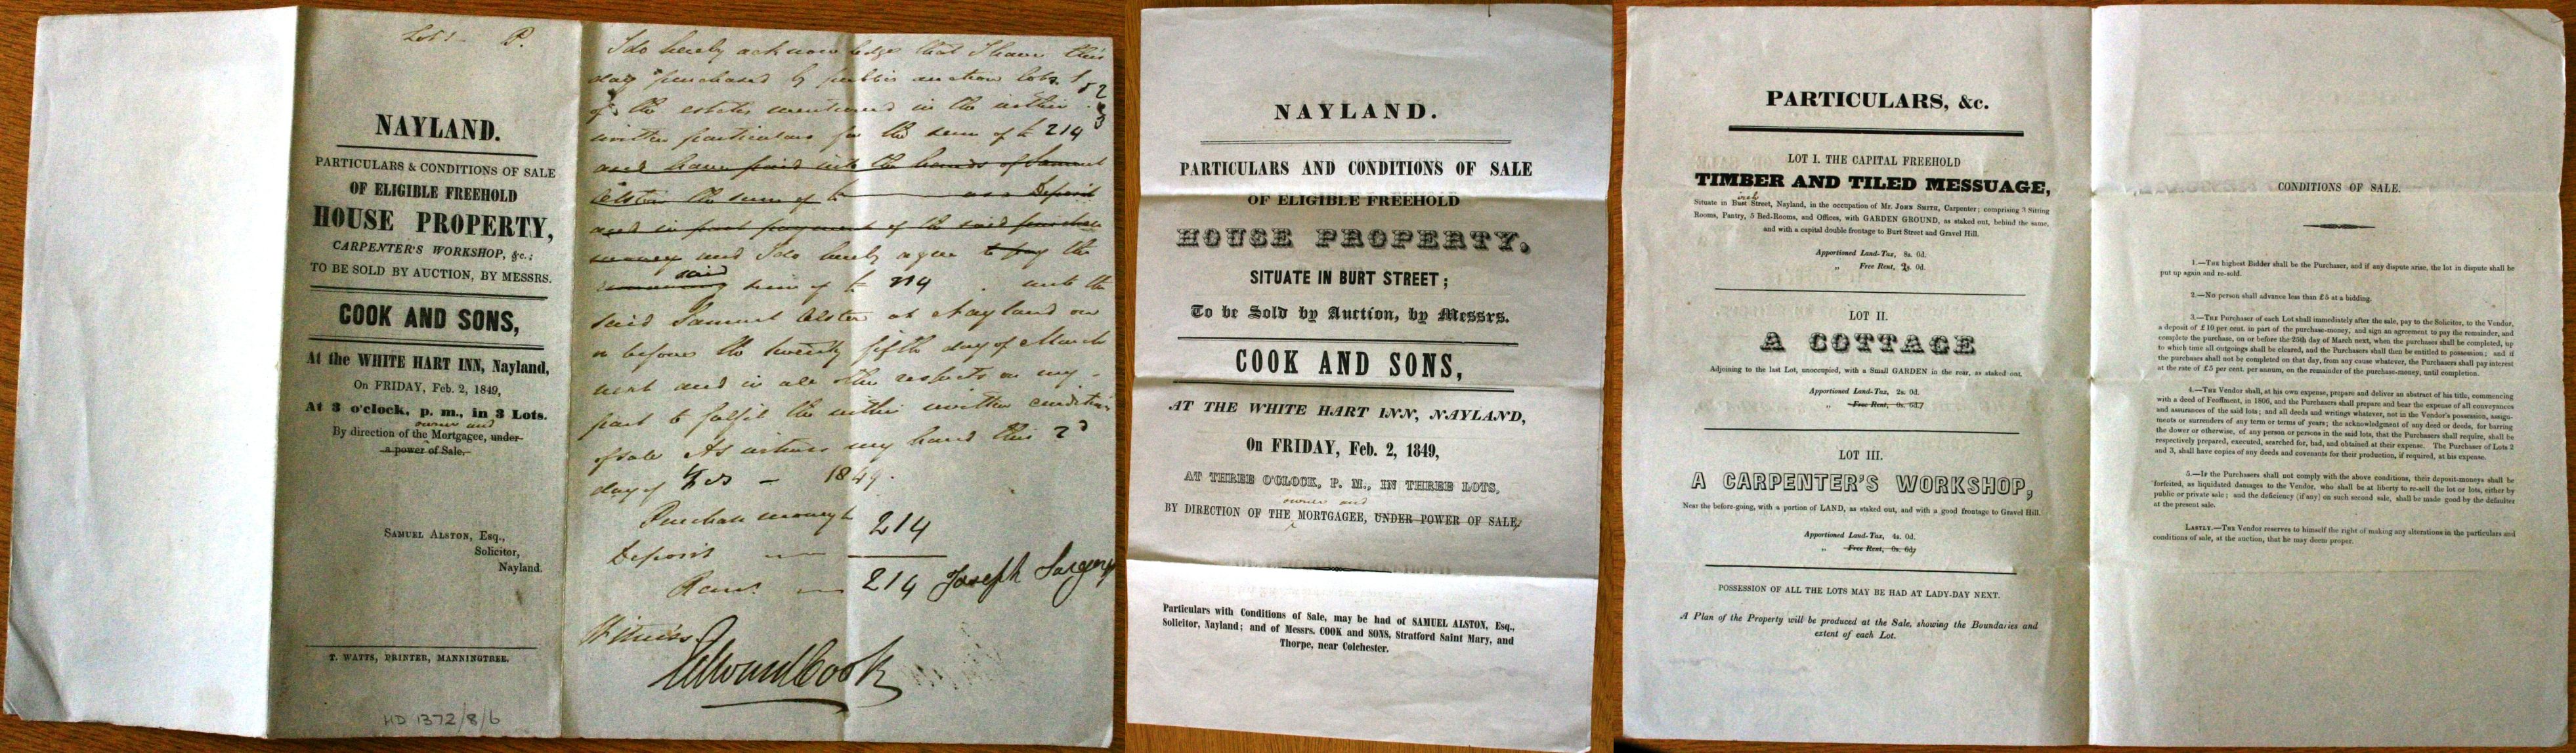 Lot 1 P.
NAYLAND.
PARTICULARS & CONDITIONS OF SALE
OF ELIGIBLE FREEHOLD
HOUSE PROPERTY,
CARPENTER'S WORKSHOP, &c.;
TO BE SOLD BY AUCTION, BY MESSRS.
COOK AND SONS,
At the WHITE HART INN, Nayland,
On FRIDAY, Feb. 2, 1849,
At 3 o'clock, p. m., in 3 Lots.
owner and
By direction of the Mortgagee, under
a power of Sale.
SAMUEL ALSTON, Esq.,
Solicitor,
Nayland.
T. WATTS, PRINTER, MANNINGTREE.
HD 1372/8/6
I do hereby acknowledge that I have this
day purchased by public auction lots 1, 2
3
of the estates mentioned in the within
written particulars for the sum of £ 214
and have paid into the hands of Samuel
Alston the sum of £ as a Deposit
and in part payment of the said purchase
money and I do hereby agree to pay the
said
remaining sum of £ 214 unto the
said Samuel Alston at Nayland on
or before the twenty fifth day of March
next and in all other respects on my
part to fulfil the within written conditions
of sale As witness my hand this 2d
day of Feb 1849.
Purchase money £ 214
Deposit
214 Joseph
Witness
Edward Cook
NAYLAND.
PARTICULARS AND CONDITIONS OF SALE
OF ELIGIBLE FREEHOLD
HOUSE PROPERTY,
SITUATE IN BURT STREET;
To be Sold by Auction, by Messrs.
COOK AND SONS,
AT THE WHITE HART INN, NAYLAND,
On FRIDAY, Feb. 2, 1849,
AT THREE O'CLOCK, P. M., IN THREE LOTS,
owner and
BY DIRECTION OF THE MORTGAGEE, UNDER POWER OF SALE,
Particulars with Conditions of Sale, may be had of SAMUEL ALSTON, Esq.,
Solicitor, Nayland; and of Messrs. COOK and SONS, Stratford Saint Mary, and
Thorpe, near Colchester.
PARTICULARS, &c.
LOT I. THE CAPITAL FREEHOLD
TIMBER AND TILED MESSUAGE,
Situate in Burt Street, Nayland, in the occupation of Mr. JOHN SMITH, Carpenter; comprising 3 Sitting
Rooms, Pantry, 5 Bed-Rooms, and Offices, with GARDEN GROUND, as staked out, behind the same,
and with a capital double frontage to Burt Street and Gravel Hill.
Apportioned Land-Tax, 8s. 0d.
„ Free Rent, s. 0d.
LOT II.
A COTTAGE
Adjoining to the last Lot, unoccupied, with a Small GARDEN in the rear, as staked out.
Apportioned Land-Tax, 2s. 0d.
„ Free Rent, 0s. 6d.
LOT III.
A CARPENTER'S WORKSHOP,
Near the before-going, with a portion of LAND, as staked out, and with a good frontage to Gravel Hill.
Apportioned Land-Tax, 4s. 0d.
„ Free Rent, 0s. 6d.
POSSESSION OF ALL THE LOTS MAY BE HAD AT LADY-DAY NEXT.
A Plan of the Property will be produced at the Sale, showing the Boundaries and
extent of each Lot.
CONDITIONS OF SALE.
1.—THE highest Bidder shall be the Purchaser, and if any dispute arise, the lot in dispute shall be
put up again and re-sold.
2.—No person shall advance less than £5 at a bidding.
3.—THE Purchaser of each Lot shall immediately after the sale, pay to the Solicitor, to the Vendor,
a deposit of £10 per cent. in part of the purchase-money, and sign an agreement to pay the remainder, and
complete the purchase, on or before the 25th day of March next, when the purchases shall be completed, up
to which time all outgoings shall be cleared, and the Purchasers shall then be entitled to possession; and if
the purchases shall not be completed on that day, from any cause whatever, the Purchasers shall pay interest
at the rate of £5 per cent. per annum, on the remainder of the purchase-money, until completion.
4.—THE Vendor shall, at his own expense, prepare and deliver an abstract of his title, commencing
with a deed of Feoffment, in 1806, and the Purchasers shall prepare and bear the expense of all conveyances
and assurances of the said lots; and all deeds and writings whatever, not in the Vendor's possession, assign-
ments or surrenders of any term or terms of years; the acknowledgment of any deed or deeds, for barring
the dower or otherwise, of any person or persons in the said lots, that the Purchasers shall require, shall be
respectively prepared, executed, searched for, had, and obtained at their expense. The Purchaser of Lots 2
and 3, shall have copies of any deeds and covenants for their production, if required, at his expense.
5.—IF the Purchasers shall not comply with the above conditions, their deposit-moneys shall be
forfeited, as liquidated damages to the Vendor, who shall be at liberty to re-sell the lot or lots, either by
public or private sale; and the deficiency (if any) on such second sale, shall be made good by the defaulter
at the present sale.
LASTLY.—THE Vendor reserves to himself the right of making any alterations in the particulars and
conditions of sale, at the auction, that he may deem proper.